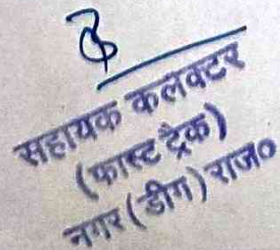 सहायक कलक्टर
(फास्ट ट्रैक)
नगर (डीग) राज०